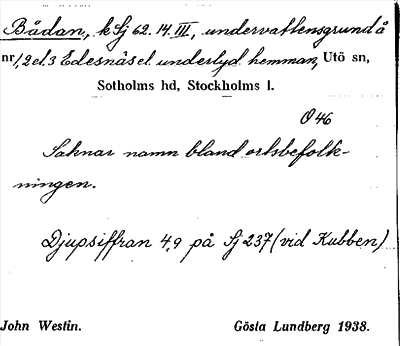 Bådan, k Sj 62. 14. III, undervattensgrund å
nr 1, 2 el. 3 Edesnäs el. underlyd. hemman, Utö sn,
Sotholms hd, Stockholms l.
Ö 46
Saknar namn bland ortsbefolk-
ningen.
Djupsiffran 4,9 på Sj 237 (vid Kubben)
John Westin.
Gösta Lundberg 1938.